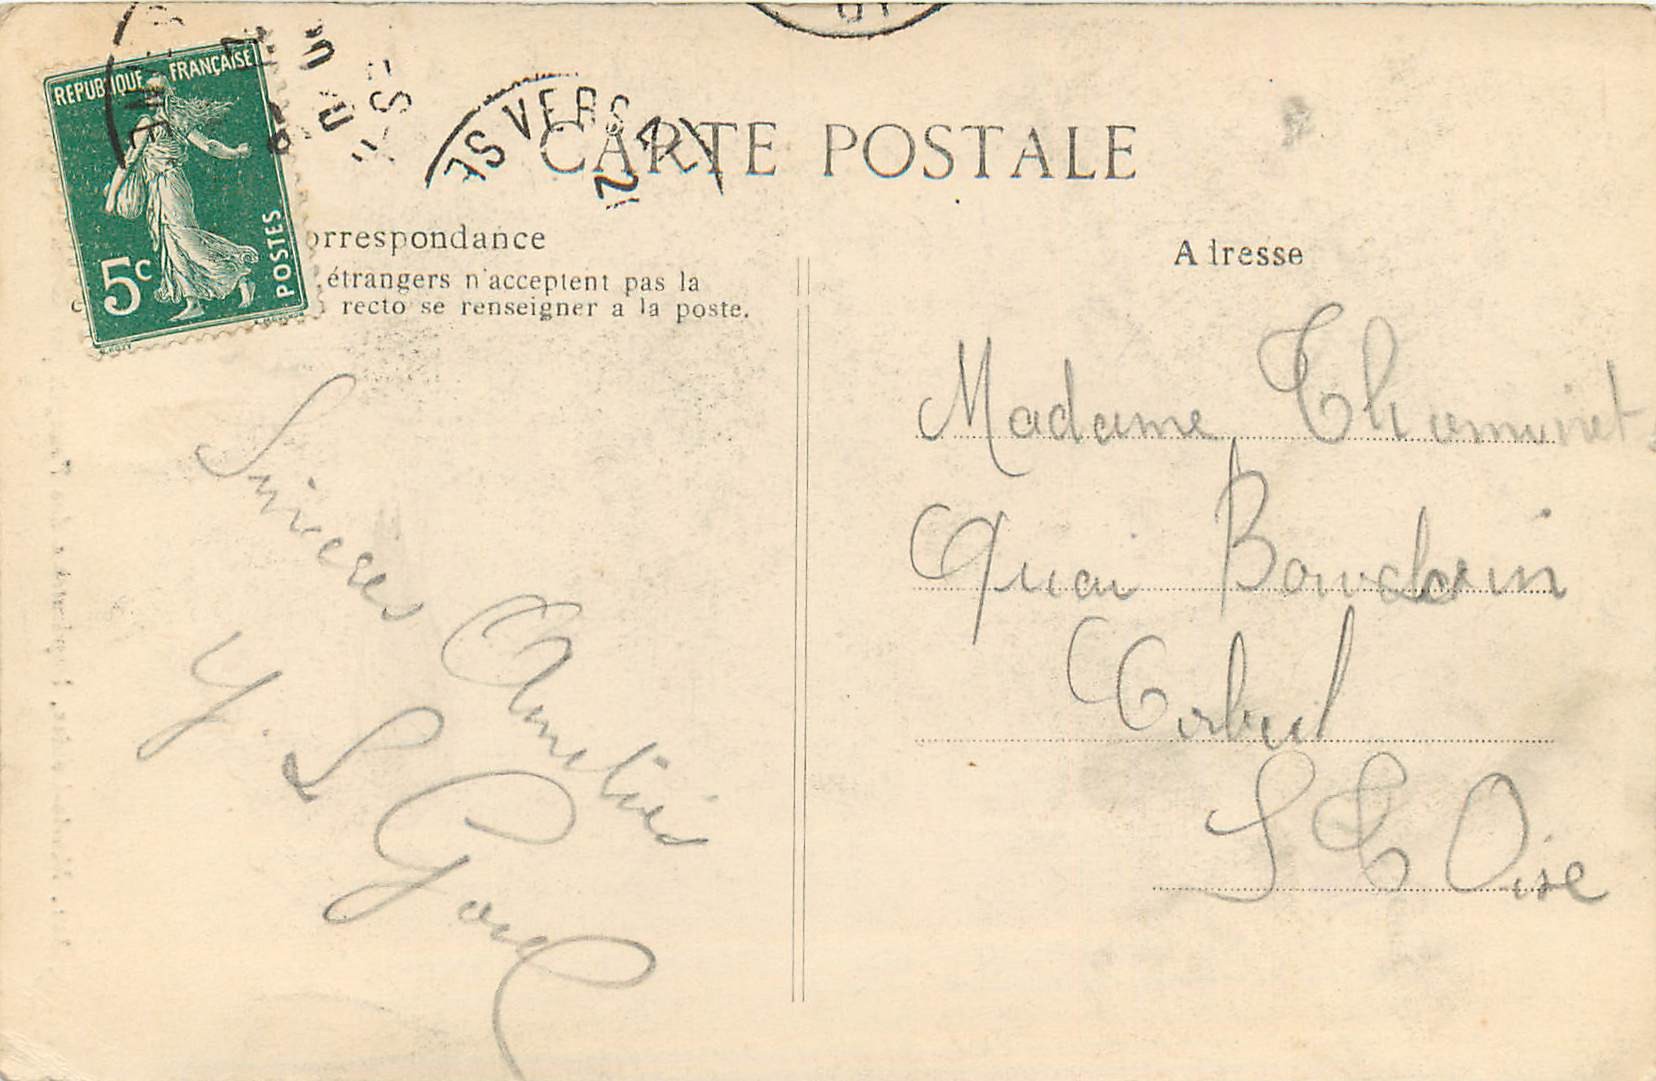 REPUBLIQUE FRANÇAISE
5c
POSTES
VERS
CARTE POSTALE
orrespondance
étrangers n'acceptent pas la
recto se renseigner a la poste.
A resse
Sinceres Amitiés
Y. L.
Madame
Quai
Corbeil
S Et Oise